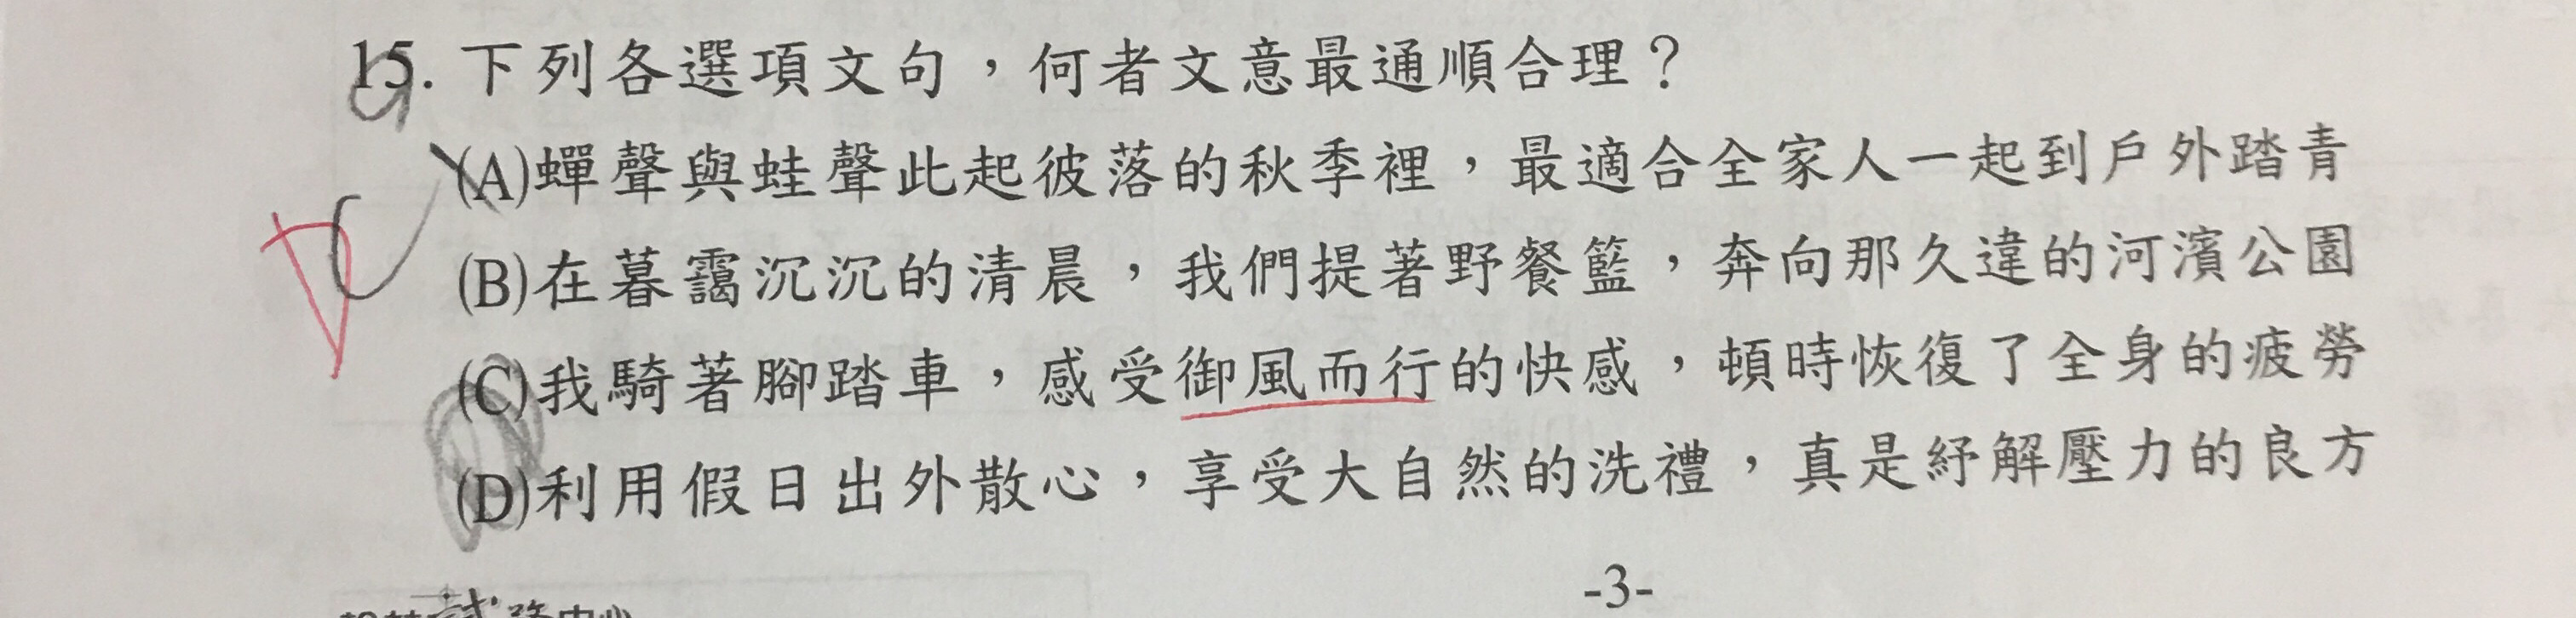 15. 下列各選項文句，何者文意最通順合理？
(A)蟬聲與蛙聲此起彼落的秋季裡，最適合全家人一起到戶外踏青
(B)在暮靄沉沉的清晨，我們提著野餐籃，奔向那久違的河濱公園
(C)我騎著腳踏車，感受御風而行的快感，頓時恢復了全身的疲勞
(D)利用假日出外散心，享受大自然的洗禮，真是紓解壓力的良方
-3-